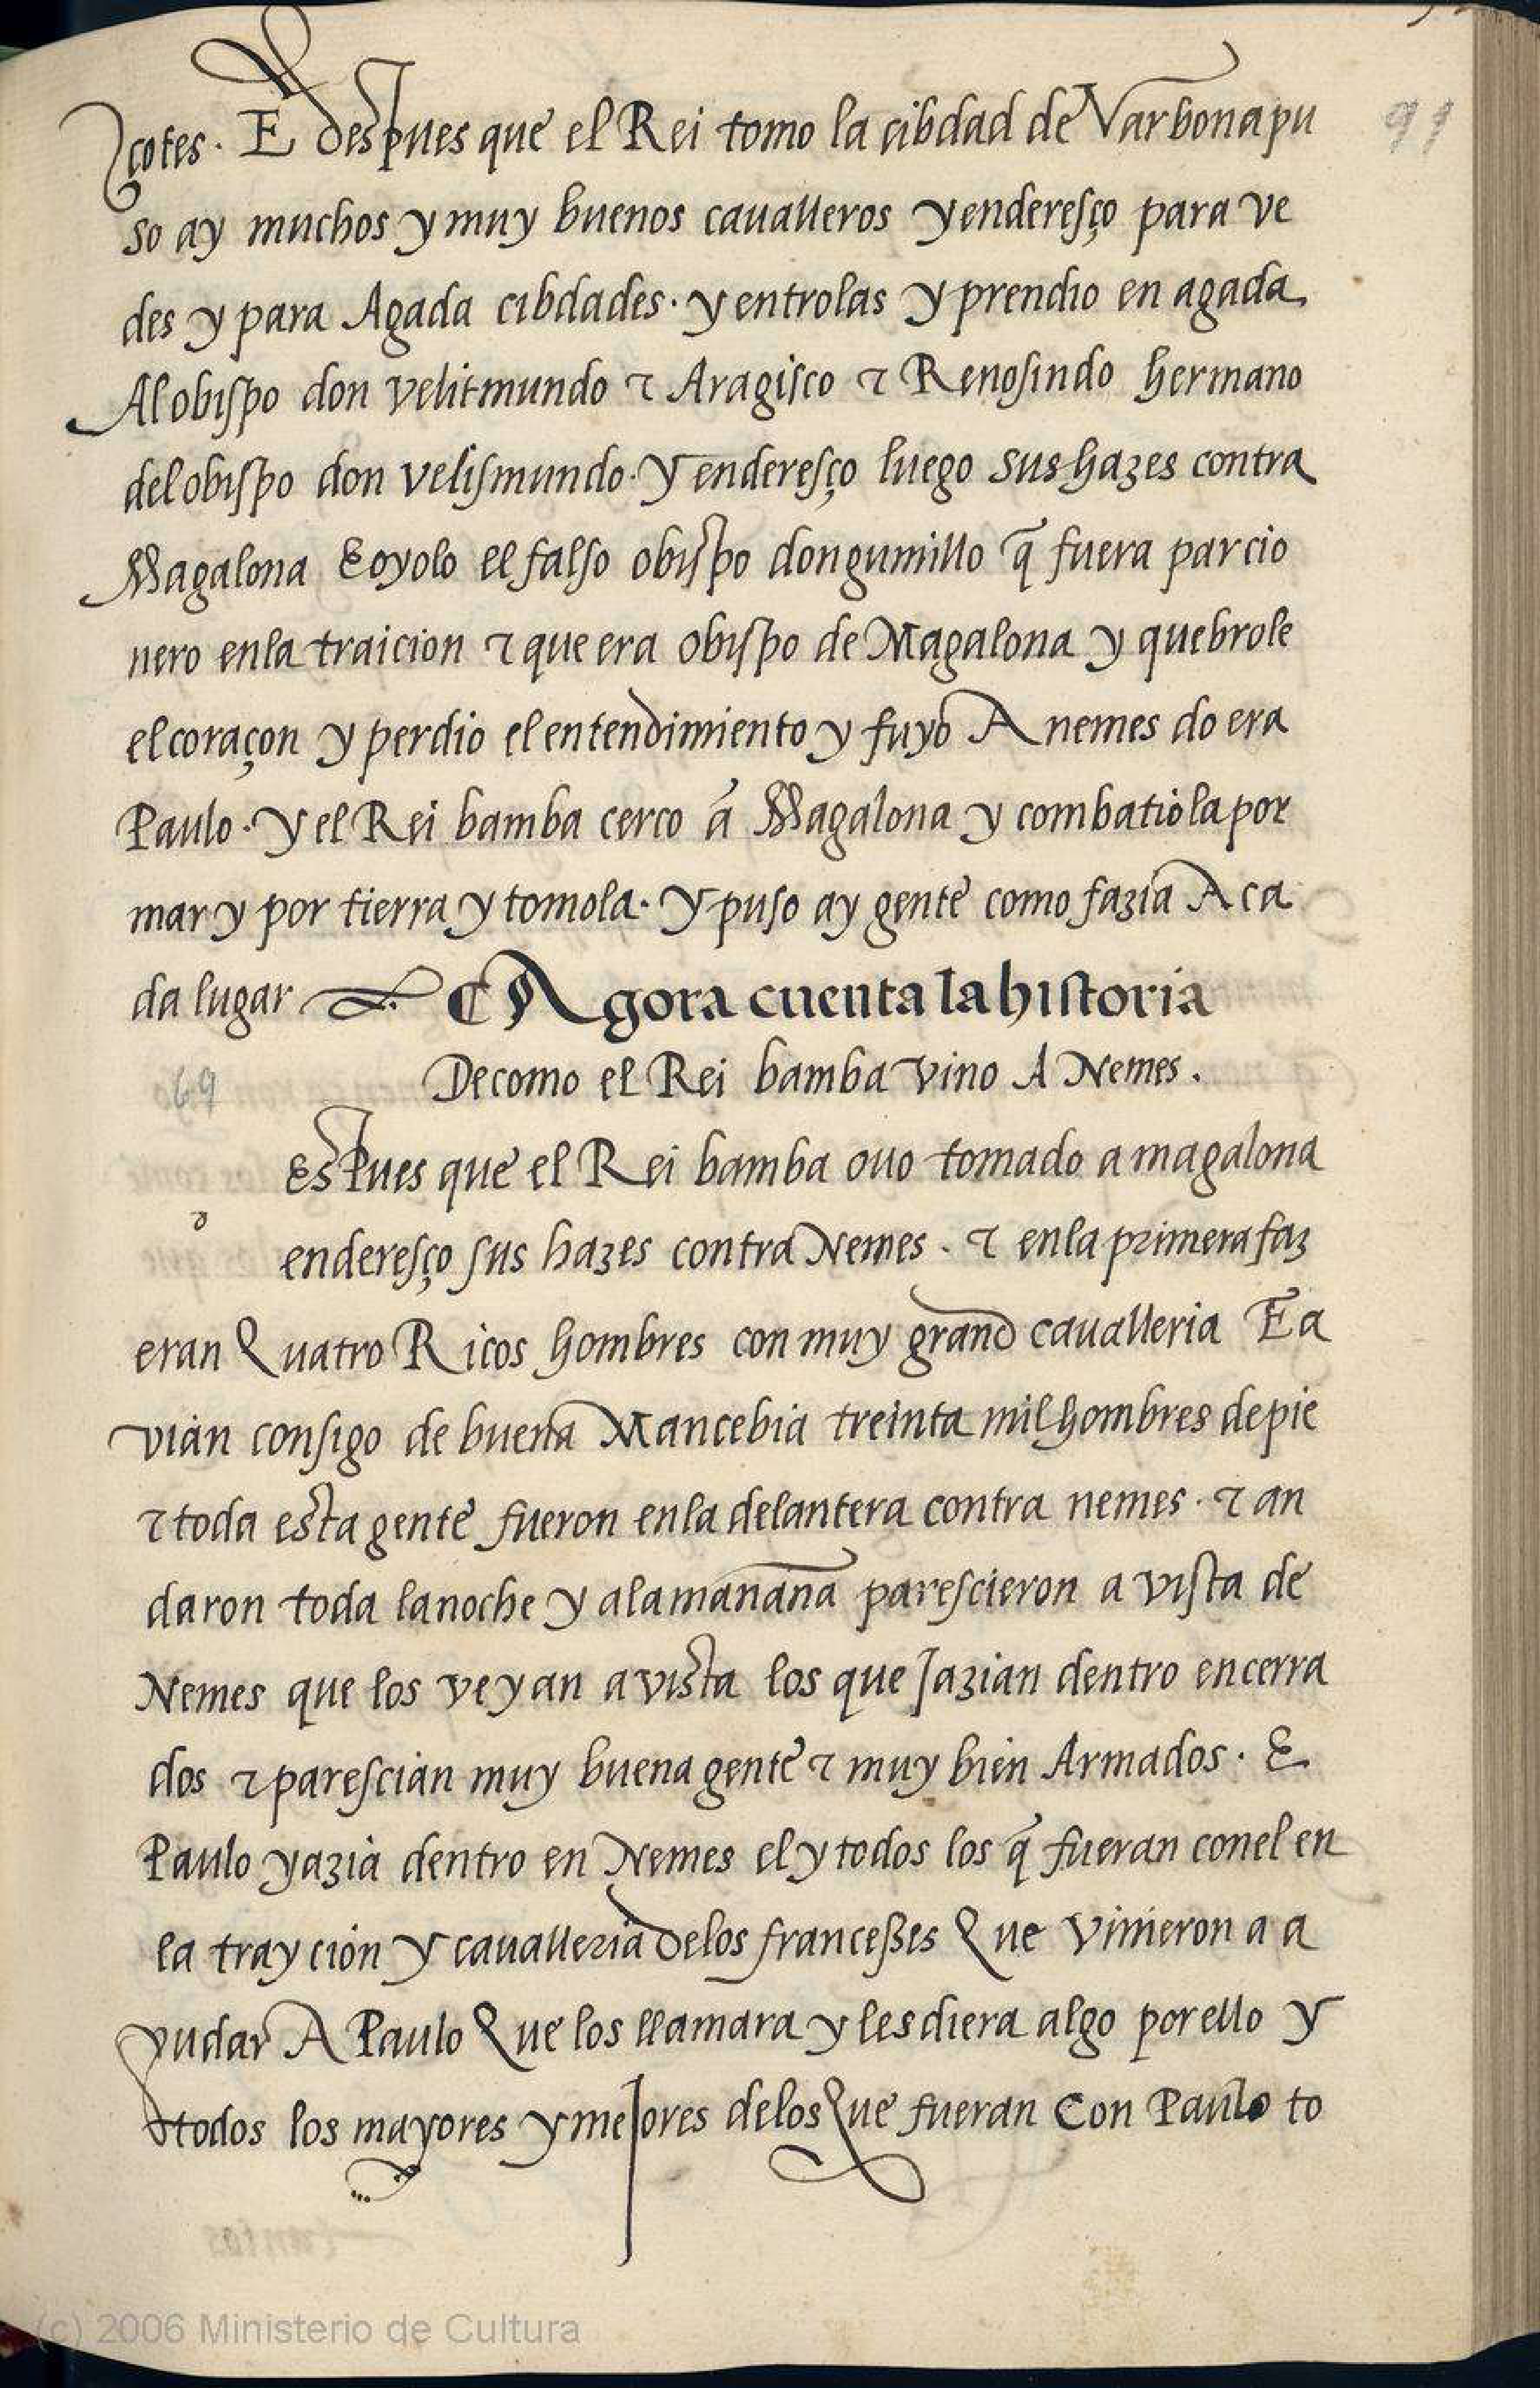 91
çotes. E despues que el Rei tomo la cibdad de Narbona pu
so ay muchos y muy buenos cavalleros y enderesço para ve
des y para Agada cibdades. y entrolas y prendio en agada
Al obispo don velitmundo τ Aragisco τ Renosindo hermano
del obispo don velismundo. Y enderesço luego sus hazes contra
Magalona E oyolo el falso obispo don gumillo q̃ fuera parcio
nero en la traicion τ que era obispo de Magalona y quebrole
el coraçon y perdio el entendimiento y fuyo A nemes do era
Paulo. Y el Rei bamba cerco a Magalona y combatiola por
mar y por tierra y tomola. Y puso ay gente como fazia A ca
da lugar Agora cuenta la historia
69
De como el Rei bamba vino A Nemes.
Espues que el Rei bamba ouo tomado a magalona
d
enderesço sus hazes contra Nemes. τ en la primera faz
eran Quatro Ricos hombres con muy grand caualleria E a
vian consigo de buena Mancebia treinta mil hombres de pie
τ toda esta gente fueron en la delantera contra nemes. τ an
daron toda la noche y a la mañana parescieron a vista de
Nemes que los veyan a vista los que Jazian dentro encerra
dos τ parescian muy buena gente τ muy bien Armados. E
Paulo yazia dentro en Nemes el y todos los q̃ fueran con el en
la traycion y caualleria de los franceses Que vinieron a a
yudar A Paulo Que los llamara y les diera algo por ello y
todos los mayores y mejores de los Que fueran Con Paulo to
(c) 2006 Ministerio de Cultura